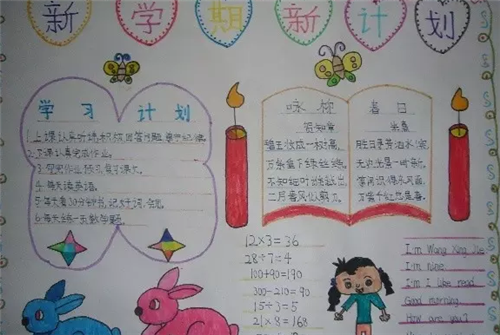 新学期新计划
学习计划
1.上课认真听讲积极回答问题,遵守纪律.
2.下课认真完成作业.
4.每天读英语.
咏柳
贺知章
碧玉妆成一树高,
万条垂下绿丝绦.
不知细叶谁裁出,
二月春风似剪刀.
春日
朱熹
胜日寻芳泗水滨,
无边光景一时新.
等闲识得东风面,
万紫千红总是春.
12×3=36
28÷7=4
100+90=190
300-210=90
15÷3=5
21×8=168
I'm Wang Xing Xie
I'm nine.
I'm I like read.
Good morning.
How are you?